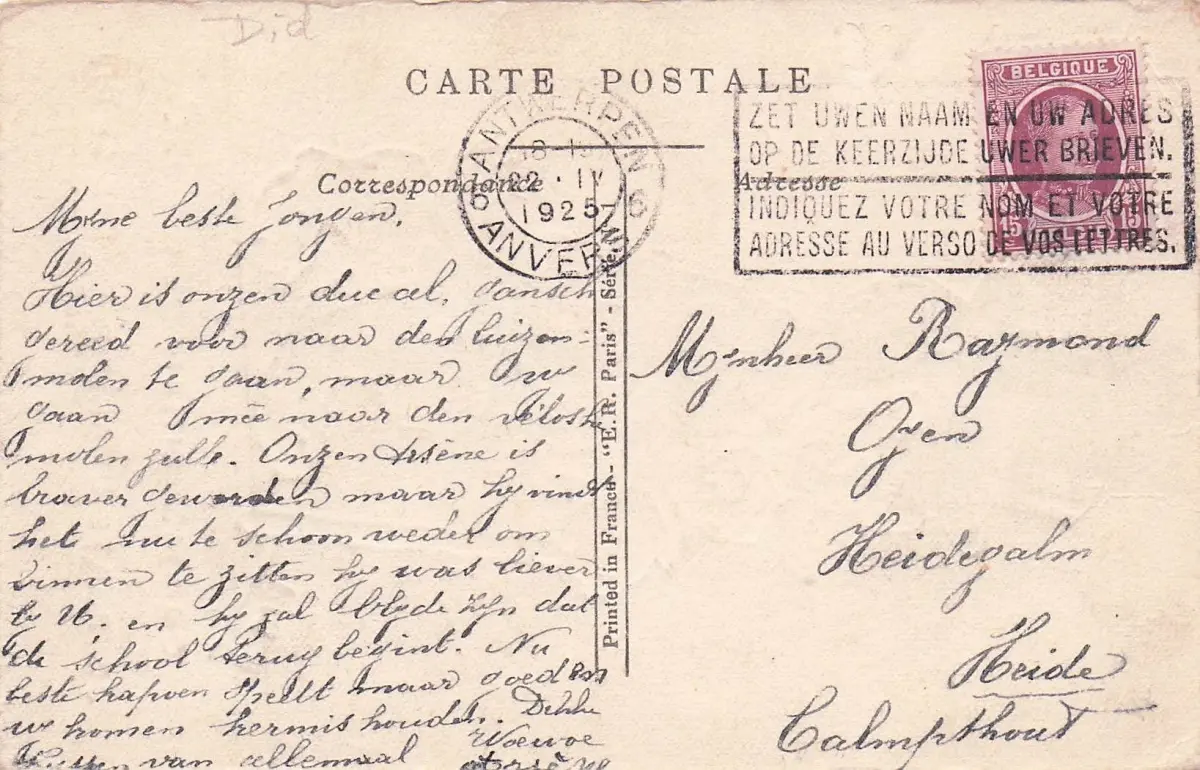 Did
CARTE POSTALE
BELGIQUE
ANTWERPEN 6
22 · IV
1925
6 ANVERS
ZET UWEN NAAM EN UW ADRES
OP DE KEERZIJDE UWER BRIEVEN.
INDIQUEZ VOTRE NOM ET VOTRE
ADRESSE AU VERSO DE VOS LETTRES.
Correspondance
Adresse
Mijne beste Jongen,
Hier is onzen duc al, gansch
gereed voor naar den luizen-
molen te gaan, maar w
gaan mée naar den
molen zulle. Onzen Arsène is
braver geworden maar hy vindt
het nu te schoon weder om
binnen te zitten hy was liever
by U. en hy zal blyde zyn dat
de school terug begint. Nu
beste kapoen speelt maar goed en
w komen kermis houden. Dikke
Kussen van allemaal
Arsène
Printed in France - "E.R. Paris" - Série
Mijnheer Raymond
Oyen
Heidegalm
Heide
Calmpthout